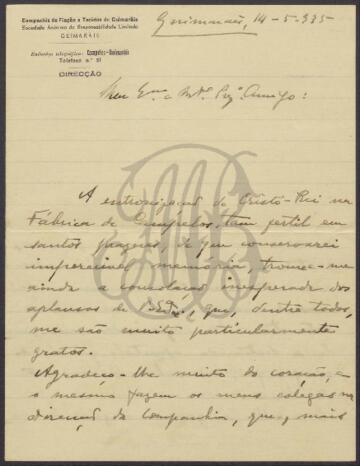 Companhia de Fiação e Tecidos de Guimarãis
Sociedade Anónima de Responsabilidade Limitada
GUIMARÃIS
Endereço telegráfico: Campelos-Guimarãis
Telefone n.º
DIRECÇÃO
Guimarães, 14-5-935
Meu Ex.mo e M.to Amigo:
A entronização de Cristo-Rei na
Fábrica de Campelos, tam fertil em
santos de que conservarei
memória, trouxe-me
ainda a consolação inesperada dos
aplausos de que, dentre todos,
me são muito particularmente
gratos.
Agradeço-lhe muito do coração, e
o mesmo fazem os meus colegas na
direcção da Companhia, que, mais